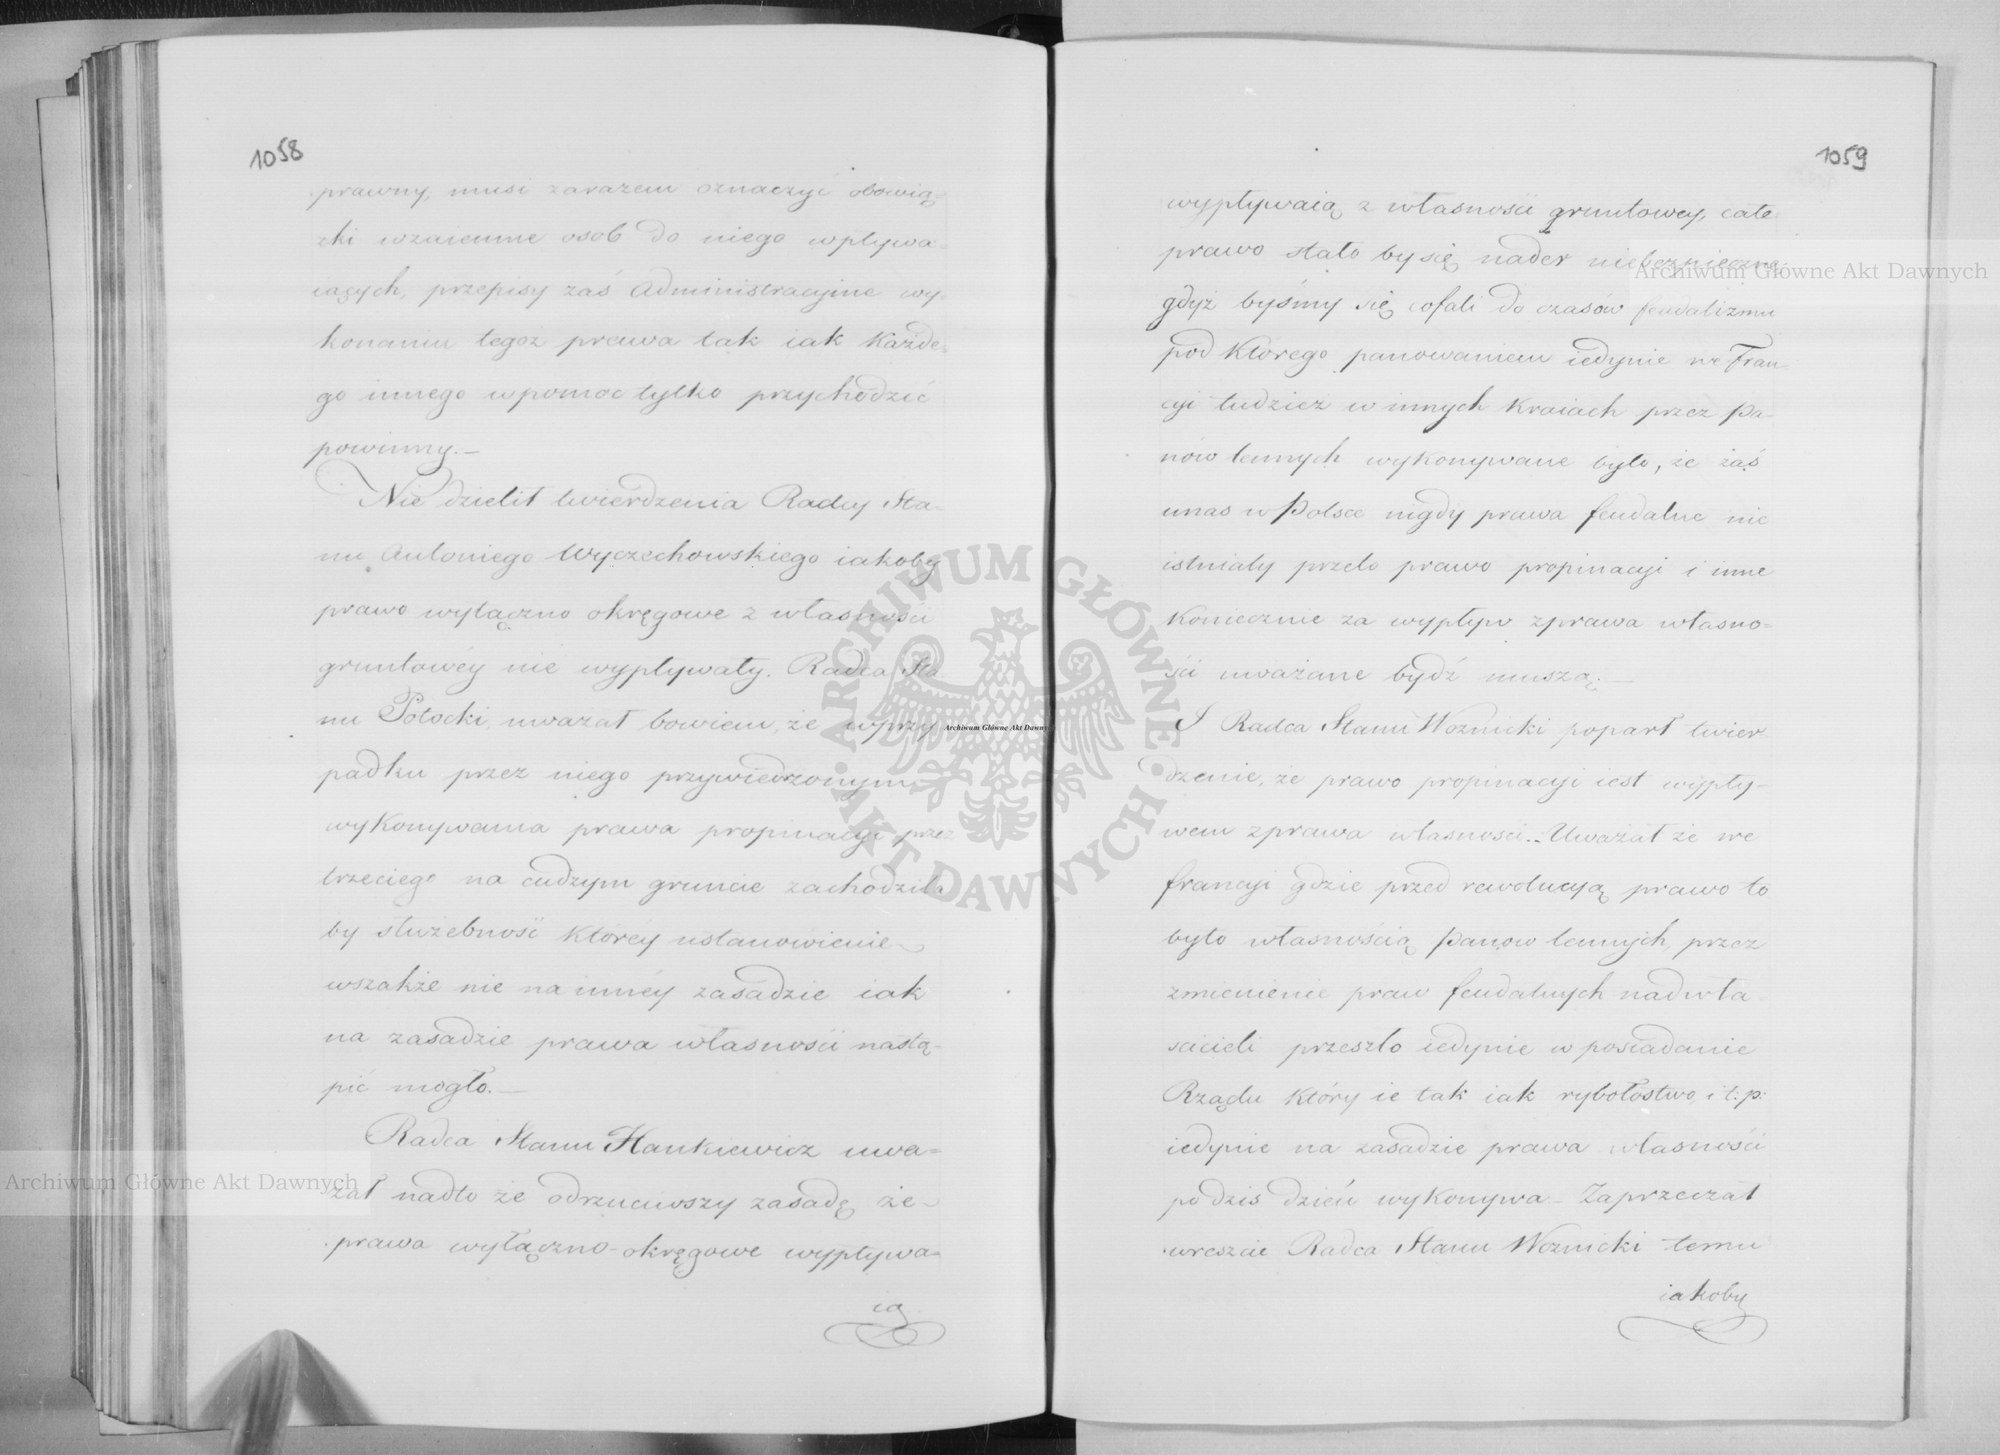 1058
prawny, musi zarazem oznaczyć obowią-
zki wzaiemne osob do niego wpływa-
iących, przepisy zaś Administracyine wy-
konaniu tegoż prawa tak iak każde-
go innego w pomoc tylko przychodzić
powinny.—
Nie dzielił twierdzenia Radcy Sta-
nu Antoniego Wyczechowskiego iakoby
prawo wyłączno okręgowe z własności
gruntowéy nie wypływały. Radca Sta-
nu Potocki, uważał bowiem, że w przy
padku przez niego przywiedzionym
wykonywania prawa propinacyi przez
trzeciego na cudzym gruncie zachodziła
by służebność któréy ustanowienie
wszakże nie na innéy zasadzie iak
na zasadzie prawa własności nastą-
pić mogło.—
Radca Stanu Hankiewicz uwa-
żał nadto że odrzuciwszy zasadę że
prawa wyłączno-okręgowe wypływa-
ią
1059
wypływaią z własności gruntowey, całe
prawo stało by się nader niebezpieczną
gdyż byśmy się cofali do czasów feudalizmu
pod którego panowaniem iedynie we Fran-
cyi tudzież w innych kraiach przez Pa-
nów lennych wykonywane było, że zaś
u nas w Polsce nigdy prawa feudalne nie
istniały przeto prawo propinacyi i inne
koniecznie za wypływ z prawa własno-
ści uważane bydź muszą.—
I Radca Stanu Woznicki poparł twier
dzenie, że prawo propinacyi iest wypły-
wem z prawa własności.. Uważał że we
francyi gdzie przed rewolucyą prawo to
było własnością Panow lennych, przez
zmienienie praw feudalnych nad wła
scicieli przeszło iedynie w posiadanie
Rządu który ie tak iak rybołostwo, i t: p:
iedynie na zasadzie prawa własności
po dzis dzień wykonywa – Zaprzeczał
wreszcie Radca Stanu Woznicki temu
iakoby
Archiwum Główne Akt Dawnych
Archiwum Główne Akt Dawnych
Archiwum Główne Akt Dawnych
ARCHIWUM GŁÓWNE AKT DAWNYCH